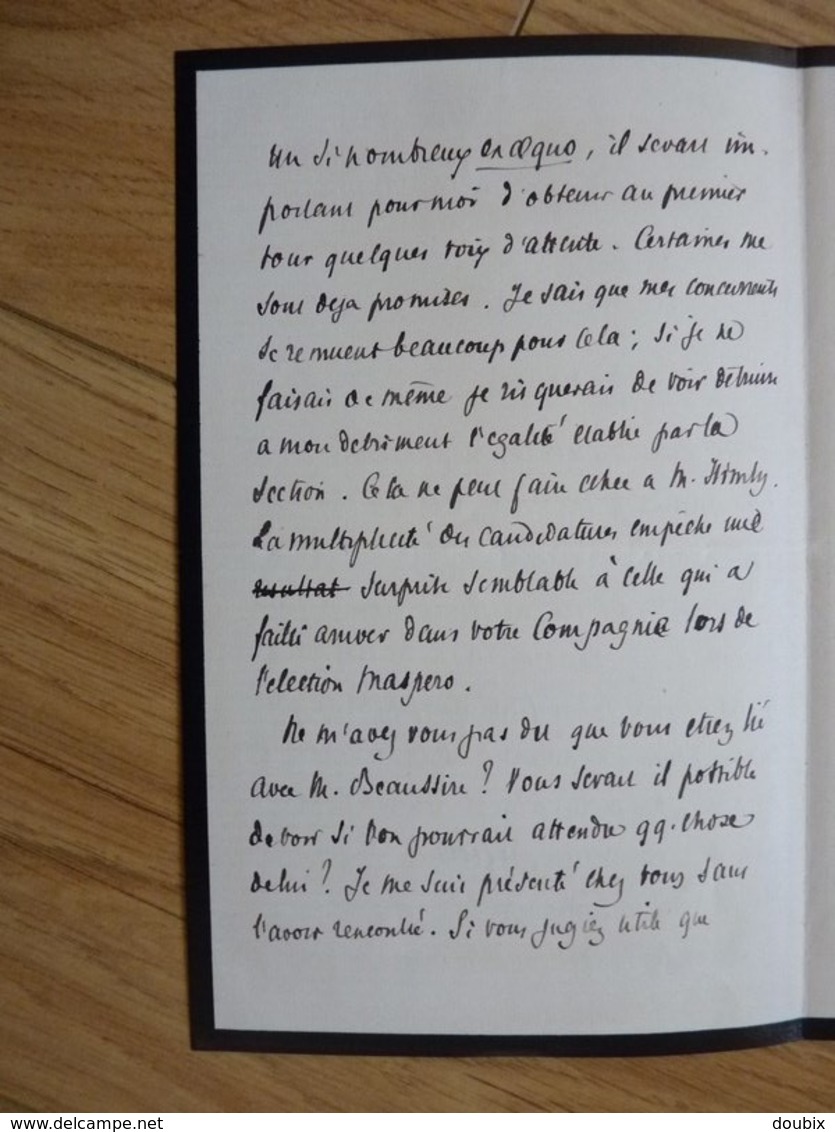 un si nombreux ex æquo, il serait im-
portant pour moi d'obtenir au premier
tour quelques voix d'attente. Certaines me
sont deja promises. Je sais que mes concurrents
se remuent beaucoup pour cela; si je ne
faisais de même je risquerais de voir détruire
a mon detriment l'egalité etablie par la
section. Cela ne peut faire echec a M. Himly.
La multiplicité des candidatures empêche une
resultat surprise semblable à celle qui a
failli arriver dans votre Compagnie lors de
l'election Maspero.
Ne m'avez vous pas dit que vous etiez lié
avec M. Beaussire? Vous serait il possible
de voir si l'on pourrait attendre qq. chose
de lui? Je me suis présenté chez vous sans
l'avoir rencontré. Si vous jugiez utile que
www.delcampe.net
doubix